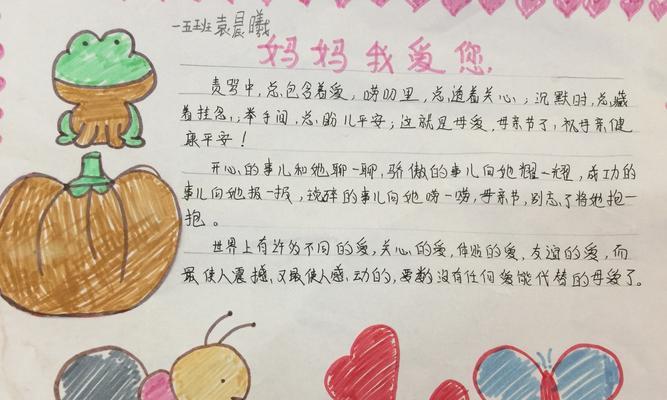 一五班 袁晨曦
妈妈我爱您
责骂中,总包含着爱,唠叨里,总透着关心;沉默时,总藏
着挂念,举手间,总盼儿平安;这就是母爱,母亲节了,祝母亲健
康平安!
开心的事儿和她聊一聊,骄傲的事儿向她耀一耀,成功的
事儿向她报一报,琐碎的事儿向她唠一唠,母亲节,别忘了将她抱一
抱。
世界上有许多不同的爱,关心的爱,体贴的爱,友谊的爱,而
最使人震撼、又最使人感动的,要数没有任何爱能代替的母爱了。